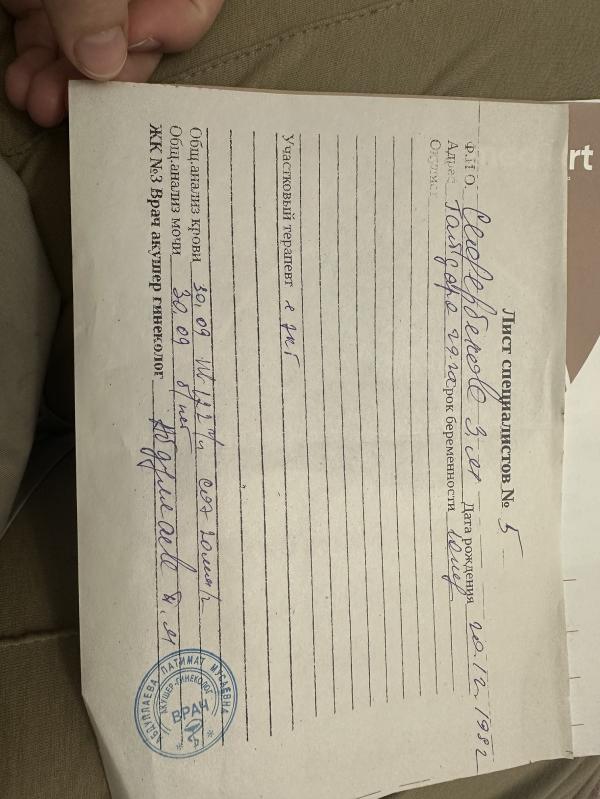 Лист специалистов № 5
Ф.И.О. З.М Дата рождения 20.12.1982
Адрес Гайдара срок беременности
Окулист
Участковый терапевт с экг
Общ.анализ крови 30.09 Hb 122 г/л соэ 20мм/ч
Общ.анализ мочи 30.09 б/нет
ЖК №3 Врач акушер гинеколог Абдуллаева П.М
АБДУЛЛАЕВА ПАТИМАТ МУСАЕВНА
АКУШЕР-ГИНЕКОЛОГ
ВРАЧ
rt